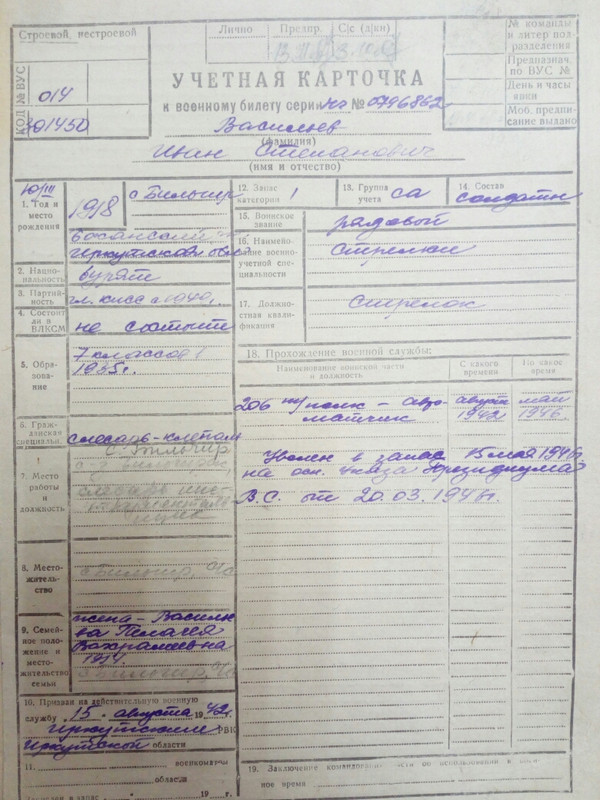 Строевой, нестроевой
Лично
Предпр.
С/с (д/кн)
№ команды
и литер подразделения
Предназнач.
по ВУС №
День и часы
явки
Моб. предписание выдано
КОД № ВУС
014
101450
УЧЕТНАЯ КАРТОЧКА
к военному билету серии № 0796862
Васильев
(фамилия)
Степанович
(имя и отчество)
10/III
1. Год и место рождения
1918
с Бильчир
Боханский
Иркутская обл
2. Национальность
бурят
3. Партийность
1940г.
4. Состоит ли в ВЛКСМ
не состоит
5. Образование
7 классов в
1935г.
6. Гражданская специальн.
слесарь-клепаль
7. Место работы и должность
с. Бильчир
слесарь инс-
8. Местожительство
с Бильчир,
9. Семейное положение и местожительство семьи
жена - Василье
ва Пелагея
Вахрамеевна
с Бильчир,
10. Призван на действительную военную
службу 15 августа 1942г.
Иркутским РВК
Иркутской области
11. военкоматом
области
19 г.
12. Запас категории 1
13. Группа учета СА
14. Состав солдаты
15. Воинское звание
рядовой
16. Наименов. военно-учетной специальности
стрелки
17. Должностная квалификация
стрелок
18. Прохождение военной службы:
Наименование воинской части и должность
С какого времени
По какое время
206 полк - авто-
матчик
август
1942
май
1946
Уволен в запас 15 мая 1946
на осн. Указа Президиума
В.С. от 20.03.1946г.
19. Заключение
время